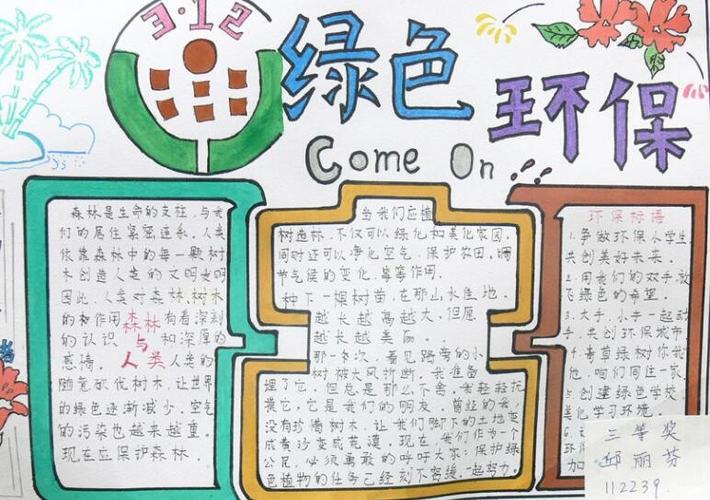 3·12
绿色
环保
Come On !!!
森林是生命的支柱,与我
们的居住紧密连系。人类
依靠森林中的每一颗树
木创造人类的文明文明
因此,人类对森林,树木
的和作用
森林
有着深刻
的认识
与
和深厚的
感情。
人类
人类的
随意砍伐树木,让世界
的绿色逐渐减少。空气
的污染也越来越重。
现在应保护森林。
当我们应植
树造林,不仅可以绿化和美化家园,
同时还可以净化空气,保护农田,调
节气候的变化,等等作用。
种下一棵树苗,在那山水佳地。
越长越高越大,但愿
越长越美丽...
那一次,看见路旁的小
树被大风折断。我准备
埋了它,但总是那么不舍,我轻轻抚
摸它,它是我们的朋友,曾经的我,
没有珍惜树木,让我们脚下的土地变
成黄沙变成荒漠。现在,我们作为一个
公民,必须勇敢的呼吁大家:保护绿
色植物的任务已经刻不容缓,一起努力。
环保标语
1.争做环保小学生
共创美好未来。
2.用我们的双手放
飞绿色的希望。
3.大手,小手一起动
手,共创环保城市
4.青草绿树你我
他,咱们同住一家
5.创建绿色学校
美化学习环境。
环
加
三等奖
邱丽芬
112239.